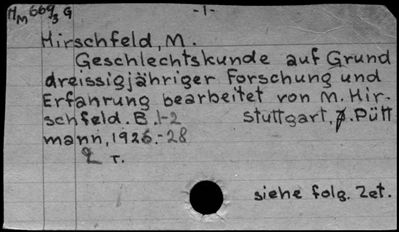 HM 669/3 G
-1-
Hirschfeld, M.
Geschlechtskunde auf Grund
dreissigjähriger Forschung und
Erfahrung bearbeitet von M. Hir-
schfeld. B. 1-2 Stuttgart, J. Pütt
mann, 1926.-28
2 T.
siehe folg. Zet.